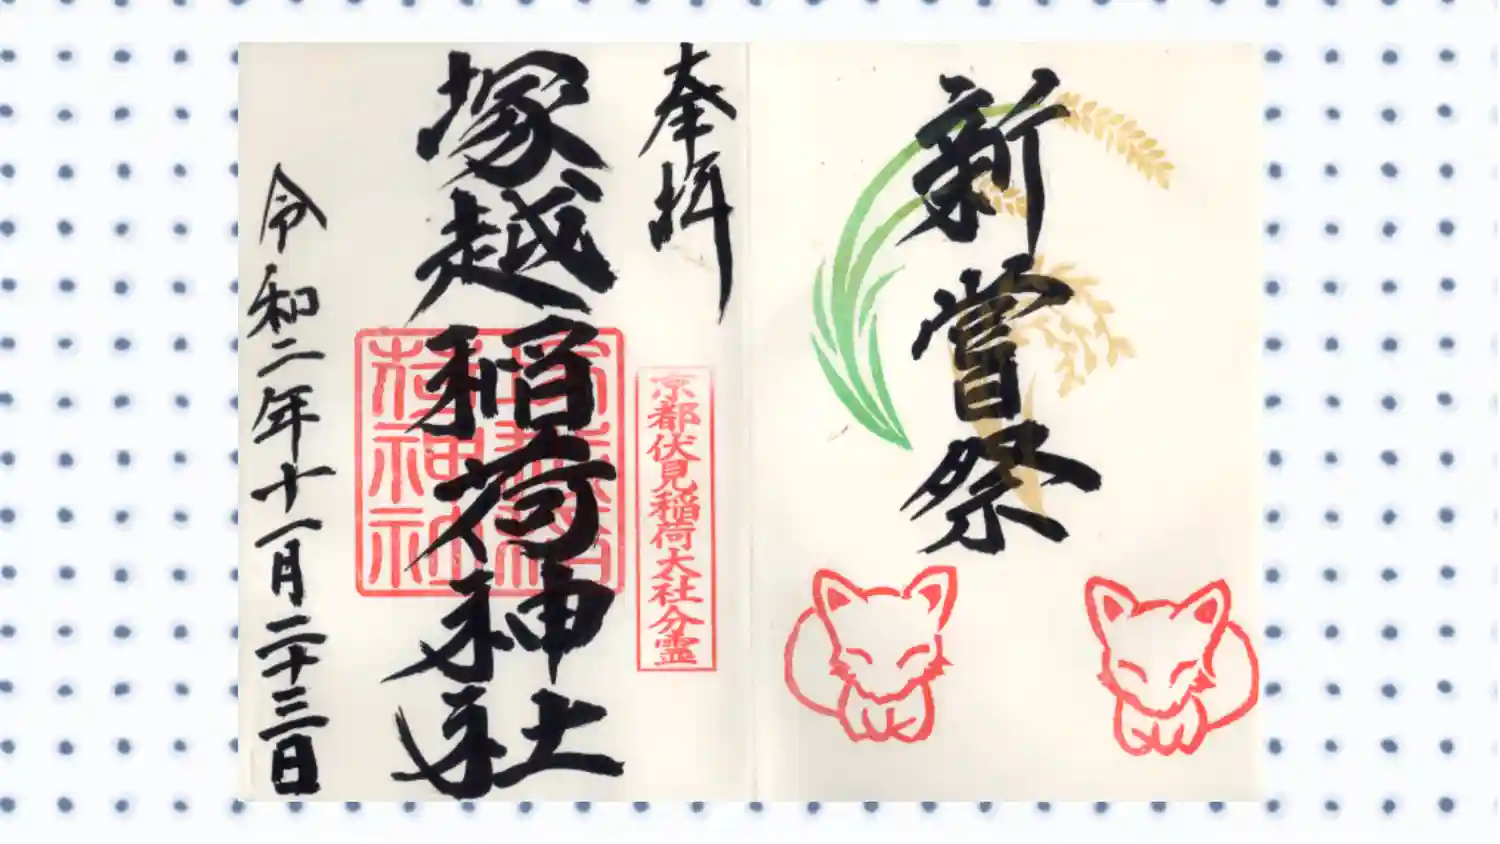 新嘗祭
奉拝
京都伏見稲荷大社分霊
塚越稲荷神社
塚越稲荷神社
令和二年十一月二十三日